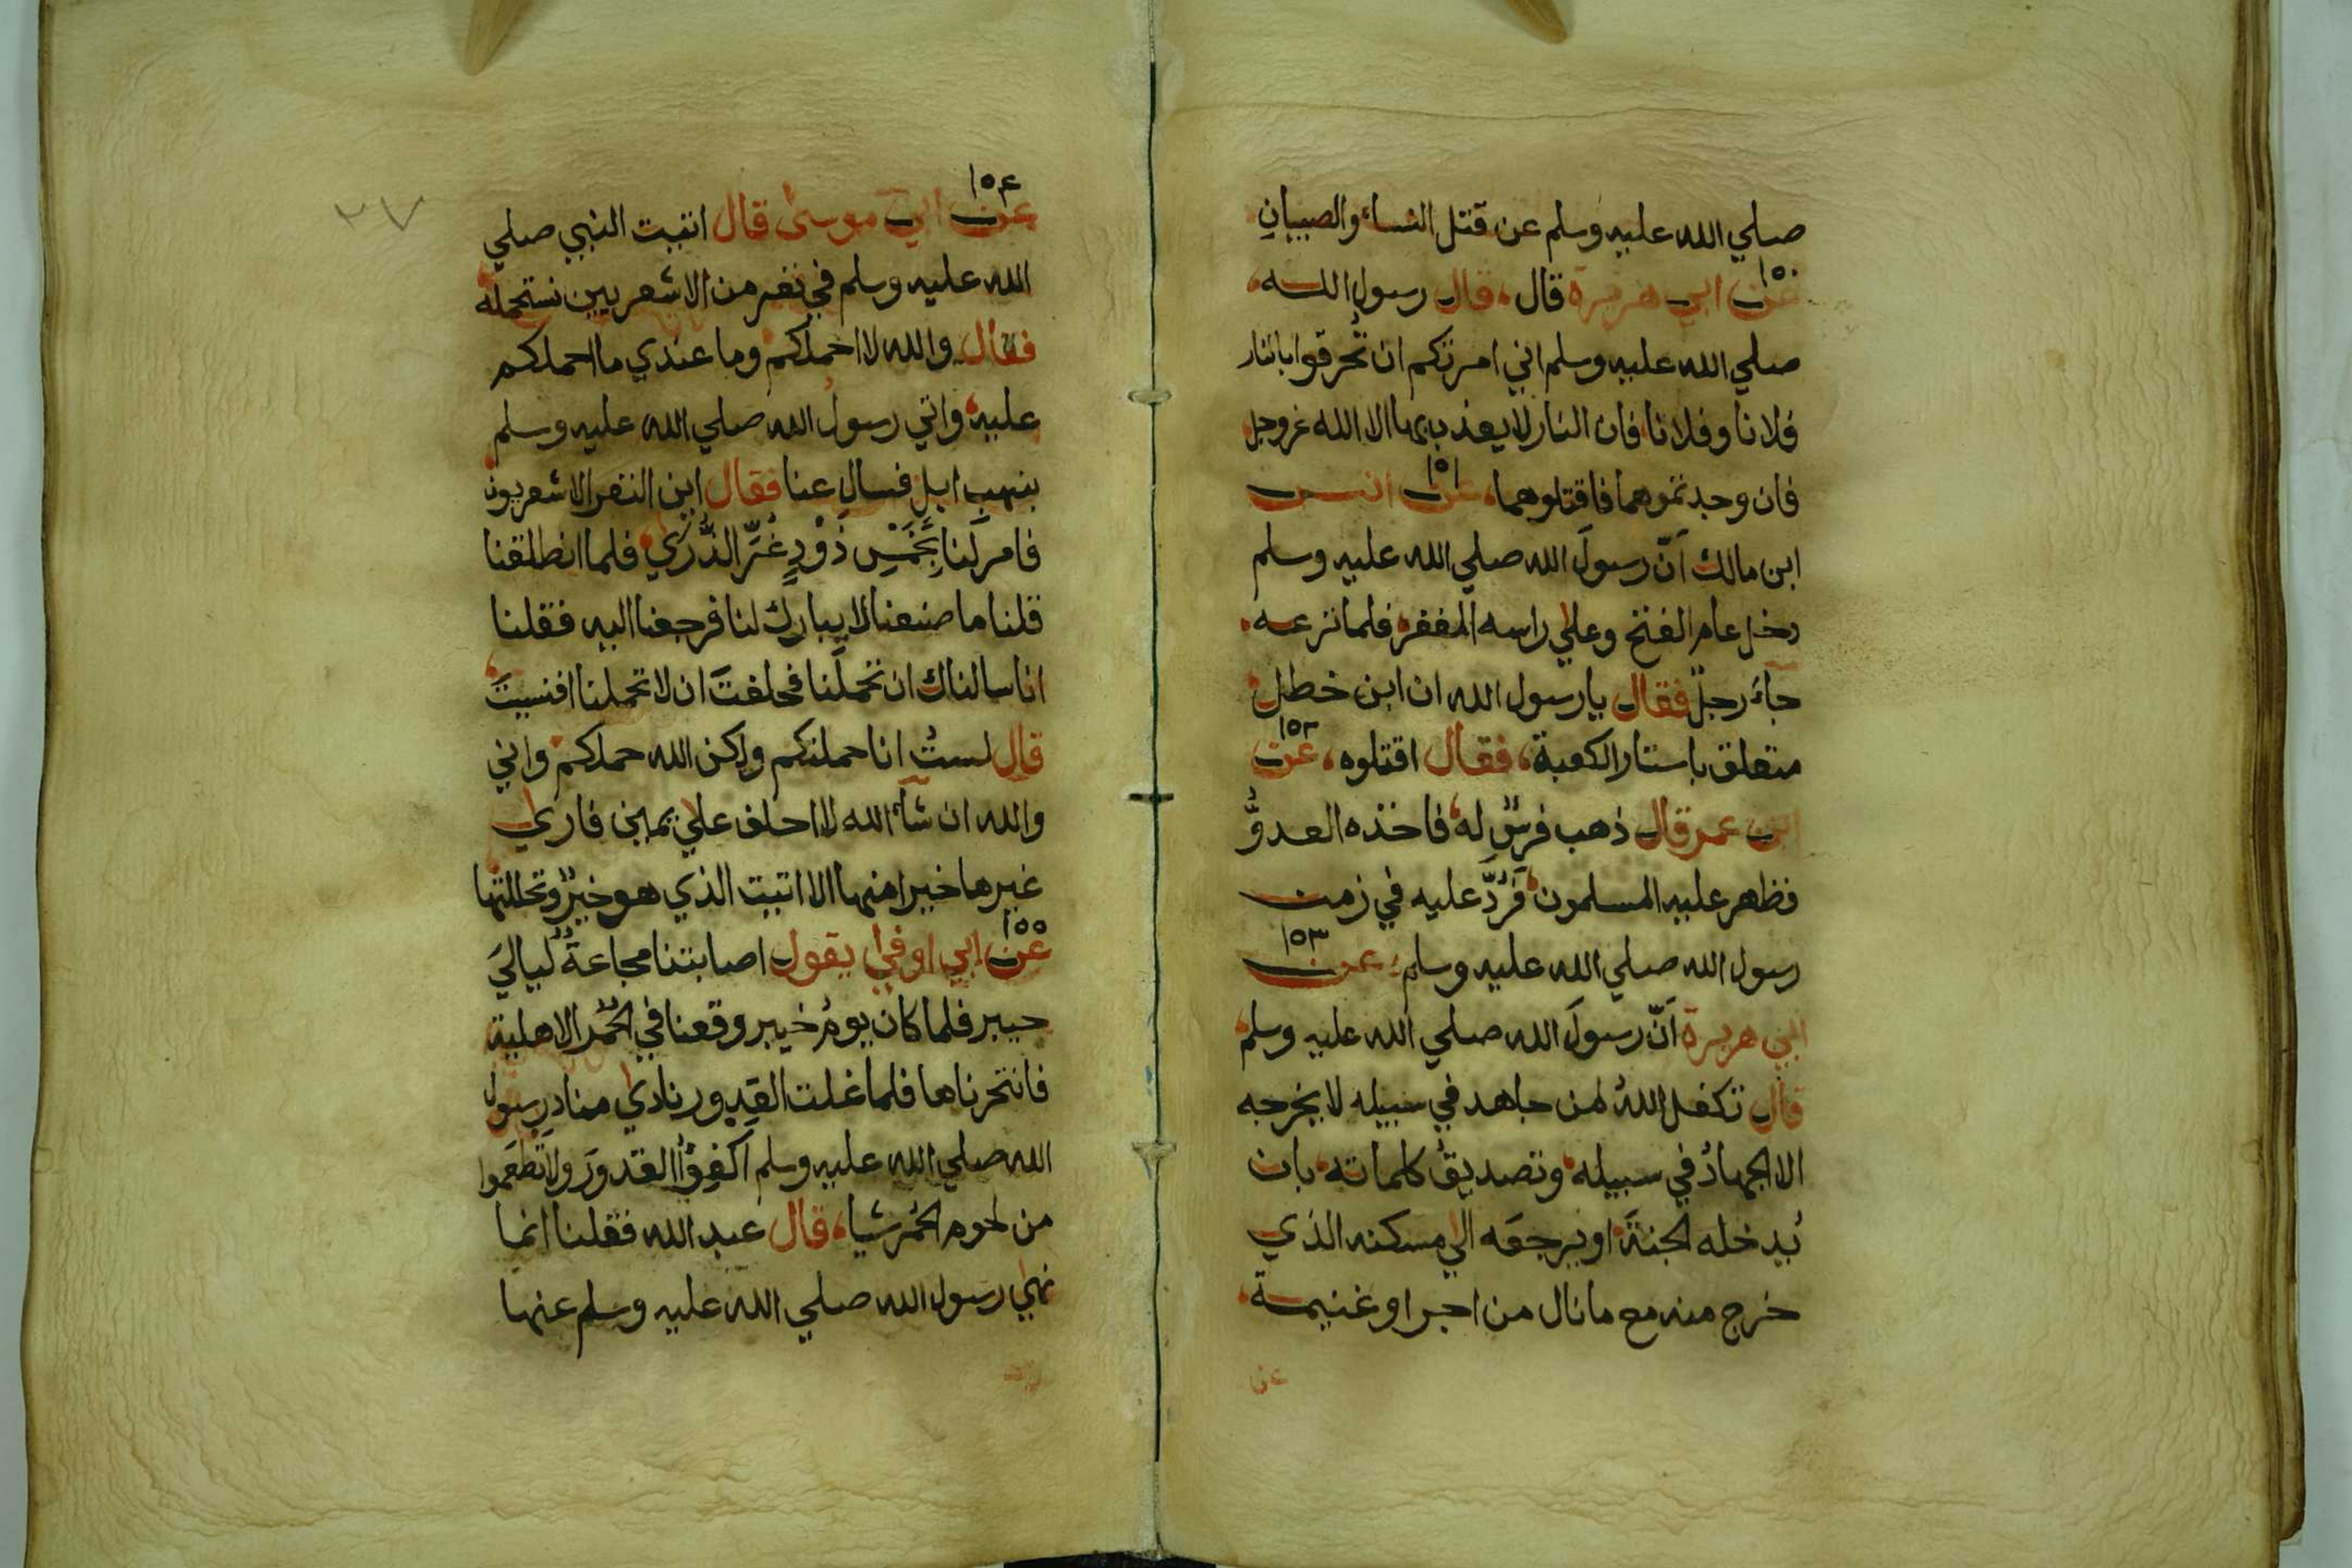 صلي الله عليه وسلم عن قتل النساء والصبيان
١٥٠
عن ابي هريرة قال، قال رسول الله،
صلي الله عليه وسلم اني امرتكم ان تُحرقوا بالنار
فلانا وفلانا فان النار لا يعذب بها الا الله عزوجل
فان وجدتموهما فاقتلوهما، عن انس
١٥١
ابن مالك اَنّ رسولَ الله صلي الله عليه وسلم
دخل عام الفتح وعلي راسه المغفر، فلما نزعه،
جآءَ رجلٌ فقال يا رسول الله ان ابن خطل،
متعلق باستار الكعبة، فقال اقتلوه، عن
١٥٢
ابن عمر قال ذهب فرسٌ له، فاخذه العدوُّ
فظهر عليه المسلمون، فَرُدَّ عليه في زمن
رسول الله صلي الله عليه وسلم، عن
١٥٣
ابي هريرة اَنّ رسولَ الله صلي الله عليه وسلم،
قال تكفل اللهُ لمن جاهد في سبيله لا يخرجه
الا الجهادُ في سبيله، وتصديقُ كلماته، بان
يُدخله الجنةَ، او يرجعَه الي مسكنه الذي
خرج منه مع ما نال من اجر او غنيمة،
عن
١٥٤
عن ابي موسى قال اتيت النبي صلي
٢٧
الله عليه وسلم في نفر من الاشعريين نستحمله،
فقال والله لا احملكم، وما عندي ما احملكم
عليه، واتي رسولُ الله صلي الله عليه وسلم
بنهب ابل فسال عنا فقال اين النفر الاشعريون
فامر لَنا بِخَمْسِ ذَوْدٍ غُرِّ الذُّرَي، فلما انطلقنا
قلنا ما صنعنا لا يبارك لنا فرجعنا اليه فقلنا
انا سالناك ان تحملَنا فحلفتَ ان لا تحملنا افنسيتَ،
قال لستُ انا حملتكم ولكن الله حملكم، واني
والله ان شآء الله لا احلف علي يمين فاري
غيرها خيرا منها الا اتيت الذي هو خيرٌ وتحللتها،
١٥٥
عن ابي اوفي يقول اصابتنا مجاعةٌ لياليَ
خيبر فلما كان يومُ خيبر وقعنا في الحُمُر الاهلية،
فانتحرناها فلما غلت القدور نادي منادِ رسول
الله صلي الله عليه وسلم اَكْفِؤُا القدورَ ولا تَطعَموا
من لحوم الحُمُر شيا، قال عبد الله فقلنا انما
نهي رسول الله صلي الله عليه وسلم عنها